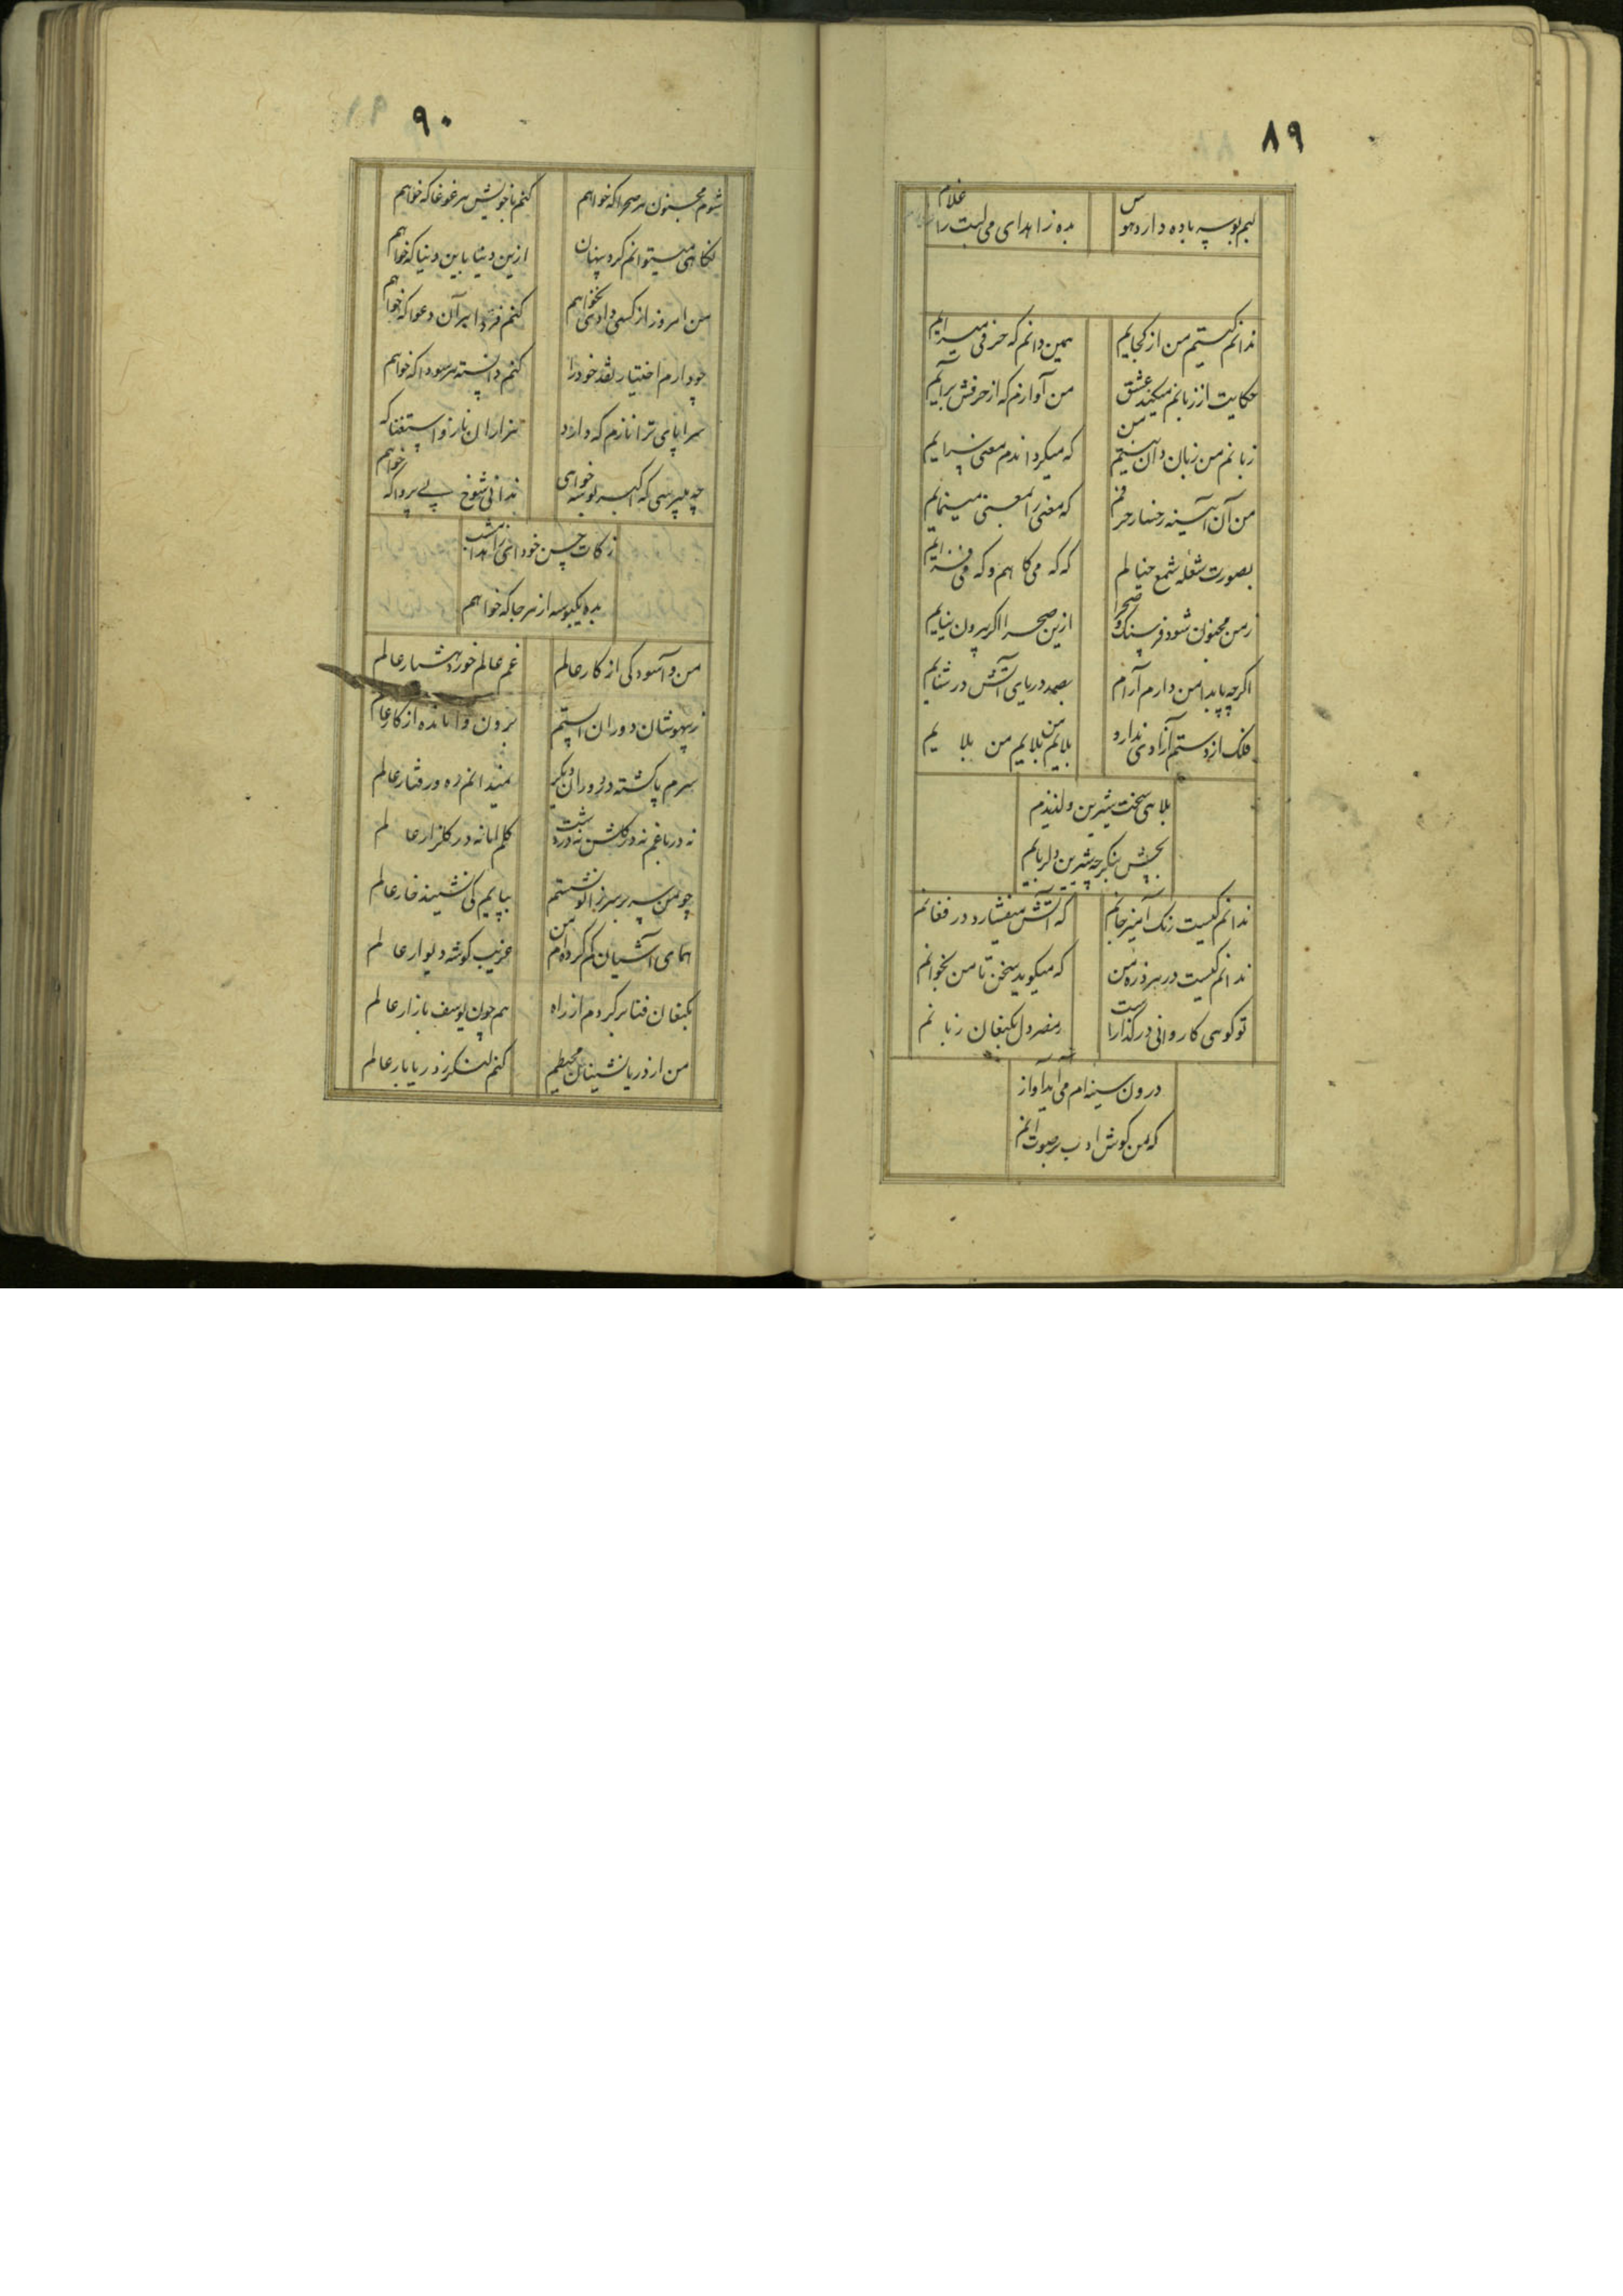 ۸۹
لبم بوسه باده دارد هوس
بده زاهدای می لبت را غلام
ندانم کیستم من از کجایم
همین دانم که حرفی میسرایم
حکایت از زبانم میکند عشق
من آوازم که از حرفش برآیم
زبانم من زبان دان نیستم من
که میکرداندم معنی سرایم
من آن آیینه رخسار حرفم
که معنی را بمعنی مینمایم
بصورت شعله شمع خیالم
که که می کاهم و که می فزایم
زمن مجنون شود فرسنک و صحرا
ازین صحرا اکر بیرون نیایم
اکرچه پا بدامن دارم آرام
بصد دریای آتش در شنایم
فلک از دستم آزادی ندارد
بلایم من بلایم من بلایم
بلای سخت شیرین و لذیذم
بچش بنکر چه شیرین دلربایم
ندانم کیست رنک آمیز جانم
که آتش میفشارد در فغانم
ندانم کیست در هر ذره من
که میکوید سخن تا من بخوانم
تو کوی کاروانی در کذار است
ز مصر دل بکنعان زبانم
درون سینه ام می آید آواز
که من کوش ادب بر صوت آنم
۹۰
شوم مجنون هر صحرا که خواهم
کنم با خویش هر غوغا که خواهم
نکاهی میتوانم کرد پنهان
ازین دنیا باین دنیا که خواهم
من امروز از کسی دادی نخواهم
کنم فردا بر آن دعوا که خواهم
چو دارم اختیار نقد خود را
کنم دانسته هر سودا که خواهم
سراپای ترا نازم که دارد
هزاران ناز و استغنا که خواهم
چه میپرسی که اکبر بوسه خواهی
ندانی شوخ بی پروا که
زکات حسن خود ای زاهدا
بده یکبوسه از هر جا که خواهم
من و آسودکی از کار عالم
غم عالم خورد هشیار عالم
ز بیهوشان دوران استم
برون وامانده از کار عالم
سرم پا کشته در دوران دیکر
نمیدانم ره و رفتار عالم
نه در باغم نه در کلشن نه در دشت
کلم اما نه در کلزار عالم
چو من سر بر سر زانو نشستم
بپایم کی نشیند خار عالم
همای آشیان کم کرده ام من
غریب کوشه دیوار عالم
بکنعان فنا برکردم از راه
هم چون یوسف بازار عالم
من از دریا نشینان محیطم
کنم لنکر ز دریا بار عالم